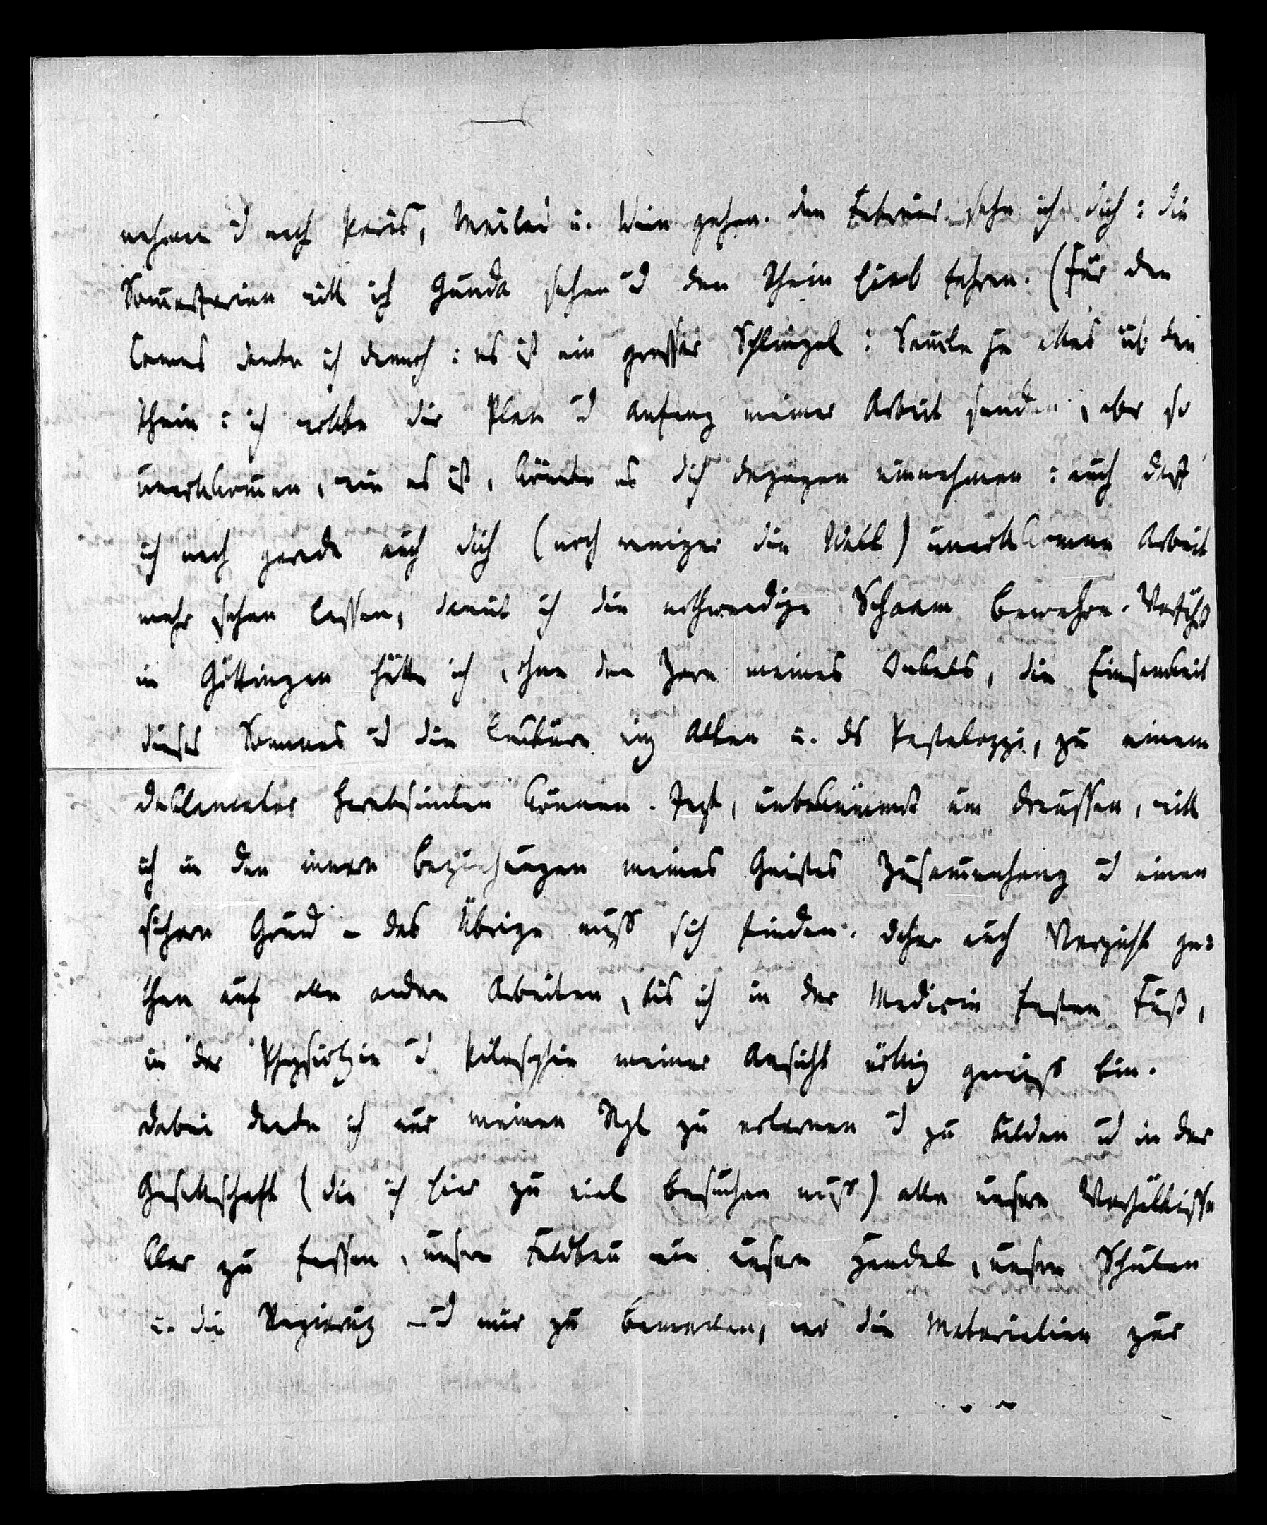 nehmen u nach Paris, Mailand u. Wien gehen. den Februar sehe ich dich: die
Sommerferien will ich Gunda sehen u den Rhein herab fahren. (Für den
danke ich dennoch: es ist ein grosser Schlingel: Samle ja alles üb den
Rhein: ich wollte dir Plan u Anfang meiner Arbeit senden, aber so
unvollkommen, wie es ist, könnte es dich dagegen einnehmen: auch darf
ich nach gerade auch dich (noch weniger die Welt) unvollkommne Arbeit
mehr sehen lassen, damit ich die nothwendige Schaam bewahre.
in Göttingen hätte ich, ohne den Zorn meines Onkels, die Einsamkeit
dieses Sommers u die Lecture der Alten u. des Pestalozzi, zu einem
Declamator herabsinken können. Jezt, unbekümmert um draussen, will
ich in den innern Beziehungen meines Geistes Zusammenhang u einen
sichern Grund – das Übrige muss sich finden. daher auch Verzicht ge=
than auf alle andern Arbeiten, bis ich in der Medicin festen Fuß,
in der Physiologie u Philosophie meiner Ansicht völlig gewiss bin.
dabei denke ich nur meinen Styl zu erlernen u zu bilden u in der
Gesellschaft (die ich hier zu viel besuchen muss) alle unsere Verhältnisse
klar zu fassen, unsern Feldbau wie unsern Handel, unsre Schulen
u. die Regierung – u mir zu bemerken, wo die Materialien zur